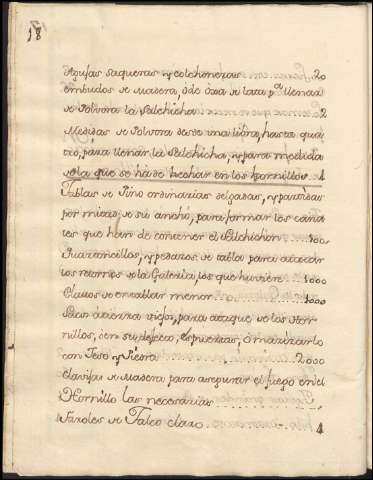 18
Agujas saqueras y colchoneras 20
embudos de Madera, ó de oxa de lata pa. llenar
de Polvora la Salchicha 2
Medidas de Polvora desde una libra, hasta qua
tro, para llenar la Salchicha, y para medida
de la que se ha de hechar en los hornillos 4
Tablas de Pino ordinarias delgadas, y partidas
por mitad de su ancho, para formar los cana
les que han de contener el Salchichon 300
y pedazos de tablas para atacar
los retornos de la Galeria, los que huvieren 1000
Clavos de entablar menor 1000
Sacos viejos, para ataque de los Hor
nillos, ó en su defecto, Espuertas, ó
con Yeso y Piedra 2000
Clavijas de Madera para asegurar el fuego en el
Hornillo las necesarias
Faroles de Talco claro 4